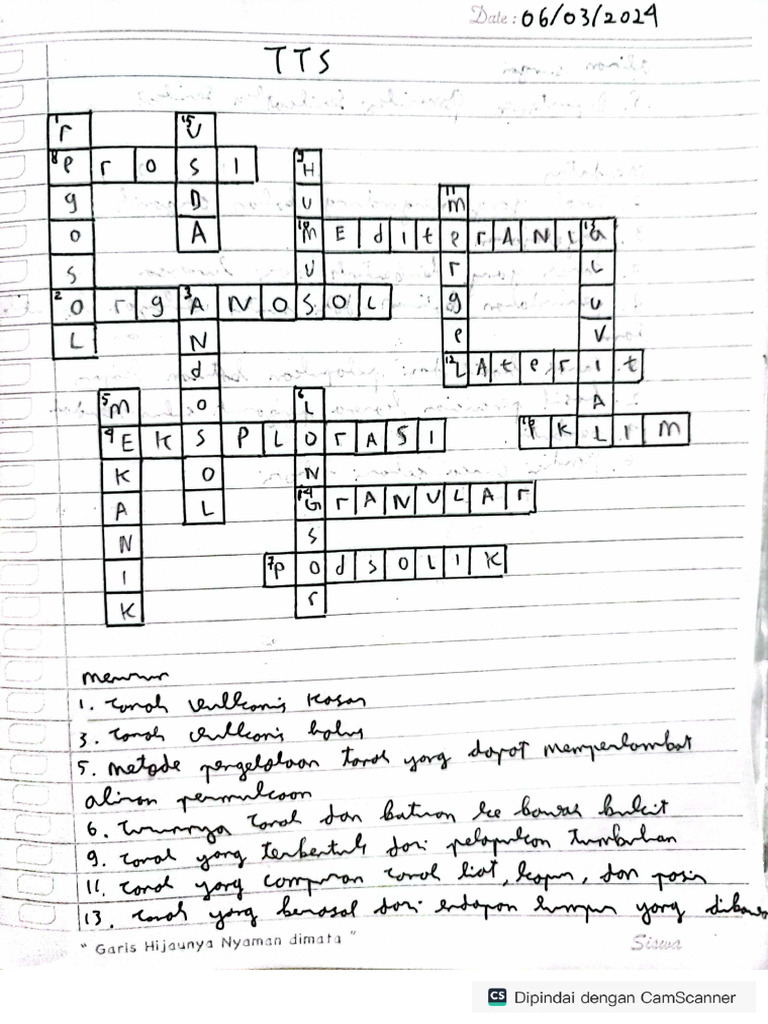 Date : 06/03/2024
TTS
1 r
15 U
8 e r o s I
9 H
g
D
U
11 m
o
A
10 m E d i t e r A N I 13 a
s
V
r
L
2 o r g 3 A N O S O L
g
U
L
N
e
V
d
12 L A t e r I t
5 m
o
6 L
A
4 E K S P L O r A S I
16 I K L I m
K
O
N
A
L
14 G r A N U L A r
N
S
I
7 P o d s O L I K
K
r
menurun
1. tanah vulkanis kasar
3. tanah vulkanis halus
5. metode pengelolaan tanah yang dapat memperlambat
aliran permukaan
6. turunnya tanah dan batuan ke bawah bukit
9. tanah yang terbentuk dari pelapukan tumbuhan
11. tanah yang campuran tanah liat, kapur, dan pasir
13. tanah yang berasal dari endapan lumpur yang dibawa
" Garis Hijaunya Nyaman dimata "
Siswa
CS Dipindai dengan CamScanner